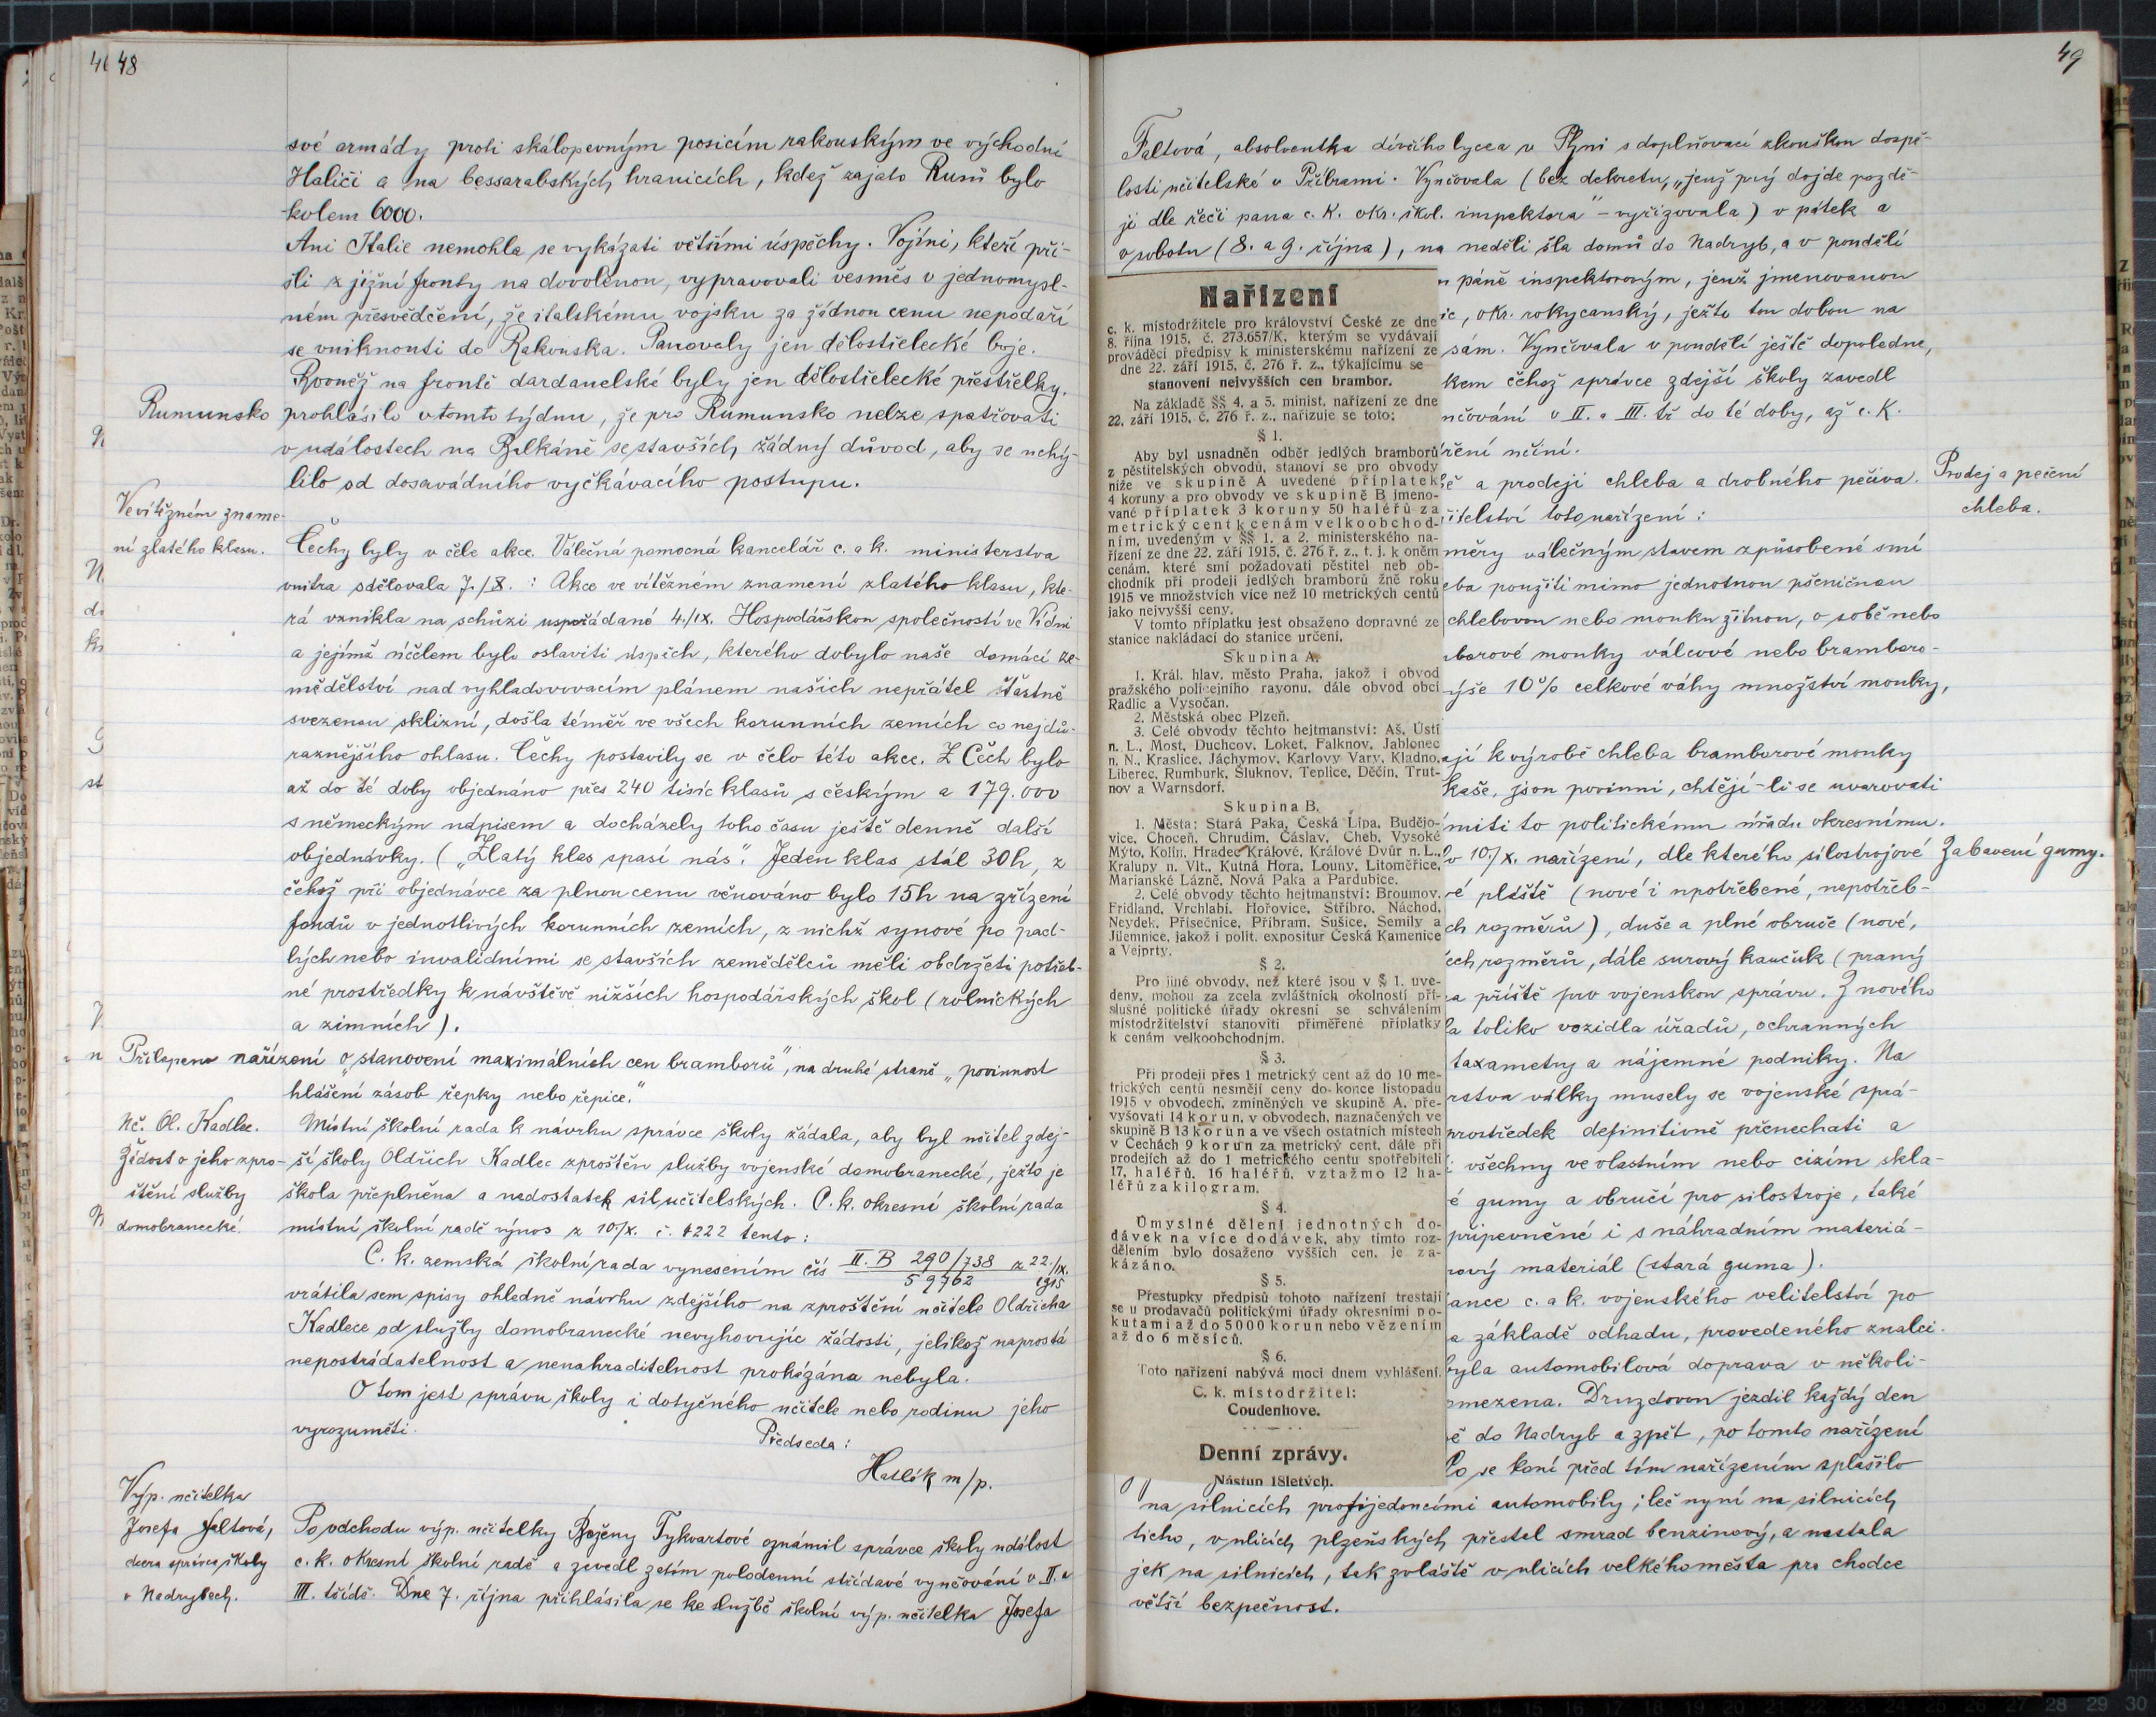 48
své armády proti skálopevným posicím rakouským ve východní
Haliči a na bessarabských hranicích, kdež zajato Rusů bylo
kolem 6000.
Ani Italie nemohla se vykázati většími úspěchy. Vojíni, kteří při-
šli z jižní fronty na dovolenou, vypravovali vesměs v jednomysl-
ném přesvědčení, že italskému vojsku za žádnou cenu nepodaří
se vniknouti do Rakouska. Panovaly jen dělostřelecké boje.
Rovněž na frontě dardanelské byly jen dělostřelecké přestřelky.
Rumunsko prohlásilo v tomto týdnu, že pro Rumunsko nelze spatřovati
v událostech na Balkáně se stavších žádný důvod, aby se uchý-
lilo od dosavádního vyčkávacího postupu.
Ve vítězném zname-
ní zlatého klasu.
Čechy byly v čele akce. Válečná pomocná kancelář c. a k. ministerstva
vnitra sdělovala 7./8.: Akce ve vítězném znamení zlatého klasu, kte-
rá vznikla na schůzi uspořádané 4./IX. Hospodářskou společností ve Vídni
a jejímž účelem bylo oslaviti úspěch, kterého dobylo naše domácí ze-
mědělství nad vyhladovovacím plánem našich nepřátel šťastně
svezenou sklizní, došla téměř ve všech korunních zemích co nejdů-
raznějšího ohlasu. Čechy postavily se v čelo této akce. Z Čech bylo
až do té doby objednáno přes 240 tisíc klasů s českým a 179.000
s německým nápisem a docházely toho času ještě denně další
objednávky. („Zlatý klas spasí nás“. Jeden klas stál 30 h, z
čehož při objednávce za plnou cenu věnováno bylo 15 h na zřízení
fondů v jednotlivých korunních zemích, z nichž synové po pad-
lých nebo invalidními se stavších zemědělců měli obdržeti potřeb-
né prostředky k návštěvě nižších hospodářských škol (rolnických
a zimních).
Přilepeno nařízení o „stanovení maximálních cen bramborů“, na druhé straně „povinnost
hlášení zásob řepky nebo řepice.“
Uč. Ol. Kadlec.
Žádost o jeho zpro-
štění služby
domobranecké.
Místní školní rada k návrhu správce školy žádala, aby byl učitel zdej-
ší školy Oldřich Kadlec zproštěn služby vojenské domobranecké, ježto je
škola přeplněna a nedostatek sil učitelských. C. k. okresní školní rada
místní školní radě výnos z 10./X. č. 4222 tento:
C. k. zemská školní rada vynesením čís II. B 290/738 z 22./IX.
59762 1915
vrátila sem spisy ohledně návrhu zdejšího na zproštění učitele Oldřicha
Kadlece od služby domobranecké nevyhovujíc žádosti, jelikož naprostá
nepostrádatelnost a nenahraditelnost prokázána nebyla.
O tom jest správu školy i dotyčného učitele nebo rodinu jeho
vyrozuměti.
Předseda:
m/p.
Výp. učitelka
Josefa Faltová,
dcera správce školy
v Nadrybech.
Po odchodu výp. učitelky Boženy Tykvartové oznámil správce školy událost
c. k. okresní školní radě a zavedl zatím polodenní střídavé vyučování v II. a
III. třídě. Dne 7. října přihlásila se ke službě školní výp. učitelka Josefa
49
Faltová, absolventka dívčího lycea v Plzni s doplňovací zkouškou dospě-
losti učitelské v Příbrami. Vyučovala (bez dekretu, „jenž prý dojde pozdě-
ji dle řeči pana c. k. okr. škol. inspektora“ – vyřizovala) v pátek a
v sobotu (8. a 9. října), na neděli šla domů do Nadryb, a v pondělí
páně inspektorovým, jenž jmenovanou
ic, okr. rokycanský, ježto tou dobou na
sám. Vyučovala v pondělí ještě dopoledne,
kem čehož správce zdejší školy zavedl
učování v II. a III. tř do té doby, až c. K.
ření učiní.
a prodeji chleba a drobného pečiva.
Prodej a pečení
chleba.
itelství toto nařízení:
měry válečným stavem způsobené smí
eba použíti mimo jednotnou pšeničnou
chlebovou nebo mouku žitnou, o sobě nebo
borové mouky válcové nebo bramboro-
ýše 10% celkové váhy množství mouky,
ají k výrobě chleba bramborové mouky
kaše, jsou povinni, chtějí-li se uvarovati
miti to politickému úřadu okresnímu.
10./X. nařízení, dle kterého silostrojové
Zabavení gumy.
é pláště (nové i upotřebené, nepotřeb-
ch rozměrů), duše a plné obruče (nové,
ech rozměrů, dále surový kaučuk (praný
a příště pro vojenskou správu. Z nového
la toliko vozidla úřadů, ochranných
taxametry a nájemné podniky. Na
rstva války musely se vojenské sprá-
prostředek definitivně přenechati a
všechny ve vlastním nebo cizím skla-
é gumy a obručí pro silostroje, také
připevněné i s náhradním materiá-
rový materiál (stará guma).
ance c. a k. vojenského velitelství po
a základě odhadu, provedeného znalci.
byla automobilová doprava v několi-
omezena. Druzdovou jezdil každý den
ě do Nadryb a zpět, po tomto nařízení
Co se koní před tím nařízením splašilo
na silnicích projijedoucími automobily; leč nyní na silnicích
ticho, v ulicích plzeňských přestal smrad benzinový, a nastala
jak na silnicích, tak zvláště v ulicích velkého města pro chodce
větší bezpečnost.
Nařízení
c. k. místodržitele pro království České ze dne
8. října 1915, č. 273.657/K, kterým se vydávají
prováděcí předpisy k ministerskému nařízení ze
dne 22. září 1915, č. 276 ř. z., týkajícímu se
stanovení nejvyšších cen brambor.
Na základě §§ 4. a 5. minist. nařízení ze dne
22. září 1915, č. 276 ř. z., nařizuje se toto:
§ 1.
Aby byl usnadněn odběr jedlých bramborů
z pěstitelských obvodů, stanoví se pro obvody
níže ve skupině A uvedené příplatek
4 koruny a pro obvody ve skupině B jmeno-
vané příplatek 3 koruny 50 haléřů za
metrický cent k cenám velkoobchod-
ním, uvedeným v §§ 1. a 2. ministerského na-
řízení ze dne 22. září 1915, č. 276 ř. z., t. j. k oněm
cenám, které smí požadovati pěstitel neb ob-
chodník při prodeji jedlých bramborů žně roku
1915 ve množstvích více než 10 metrických centů
jako nejvyšší ceny.
V tomto příplatku jest obsaženo dopravné ze
stanice nakládací do stanice určení.
Skupina A.
1. Král. hlav. město Praha, jakož i obvod
pražského policejního rayonu, dále obvod obcí
Radlic a Vysočan.
2. Městská obec Plzeň.
3. Celé obvody těchto hejtmanství: Aš, Ústí
n. L., Most, Duchcov, Loket, Falknov, Jablonec
n. N., Kraslice, Jáchymov, Karlovy Vary, Kladno,
Liberec, Rumburk, Šluknov, Teplice, Děčín, Trut-
nov a Warnsdorf.
Skupina B.
1. Města: Stará Paka, Česká Lípa, Budějo-
vice, Choceň, Chrudim, Čáslav, Cheb, Vysoké
Mýto, Kolín, Hradec Králové, Králové Dvůr n. L.,
Kralupy n. Vlt., Kutná Hora, Louny, Litoměřice,
Marianské Lázně, Nová Paka a Pardubice.
2. Celé obvody těchto hejtmanství: Broumov,
Fridland, Vrchlabí, Hořovice, Stříbro, Náchod,
Neydek, Přísečnice, Příbram, Sušice, Semily a
Jilemnice, jakož i polit. expositur Česká Kamenice
a Vejprty.
§ 2.
Pro jiné obvody, než které jsou v § 1. uve-
deny, mohou za zcela zvláštních okolností pří-
slušné politické úřady okresní se schválením
místodržitelství stanoviti přiměřené příplatky
k cenám velkoobchodním.
§ 3.
Při prodeji přes 1 metrický cent až do 10 me-
trických centů nesmějí ceny do konce listopadu
1915 v obvodech, zmíněných ve skupině A, pře-
vyšovati 14 korun, v obvodech, naznačených ve
skupině B 13 korun a ve všech ostatních místech
v Čechách 9 korun za metrický cent, dále při
prodejích až do 1 metrického centu spotřebiteli
17 haléřů, 16 haléřů, vztažmo 12 ha-
léřů za kilogram.
§ 4.
Úmyslné dělení jednotných do-
dávek na více dodávek, aby tímto roz-
dělením bylo dosaženo vyšších cen, je za-
kázáno.
§ 5.
Přestupky předpisů tohoto nařízení trestají
se u prodavačů politickými úřady okresními po-
kutami až do 5000 korun nebo vězením
až do 6 měsíců.
§ 6.
Toto nařízení nabývá moci dnem vyhlášení.
C. k. místodržitel:
Coudenhove.
Denní zprávy.
Nástup 18letých.